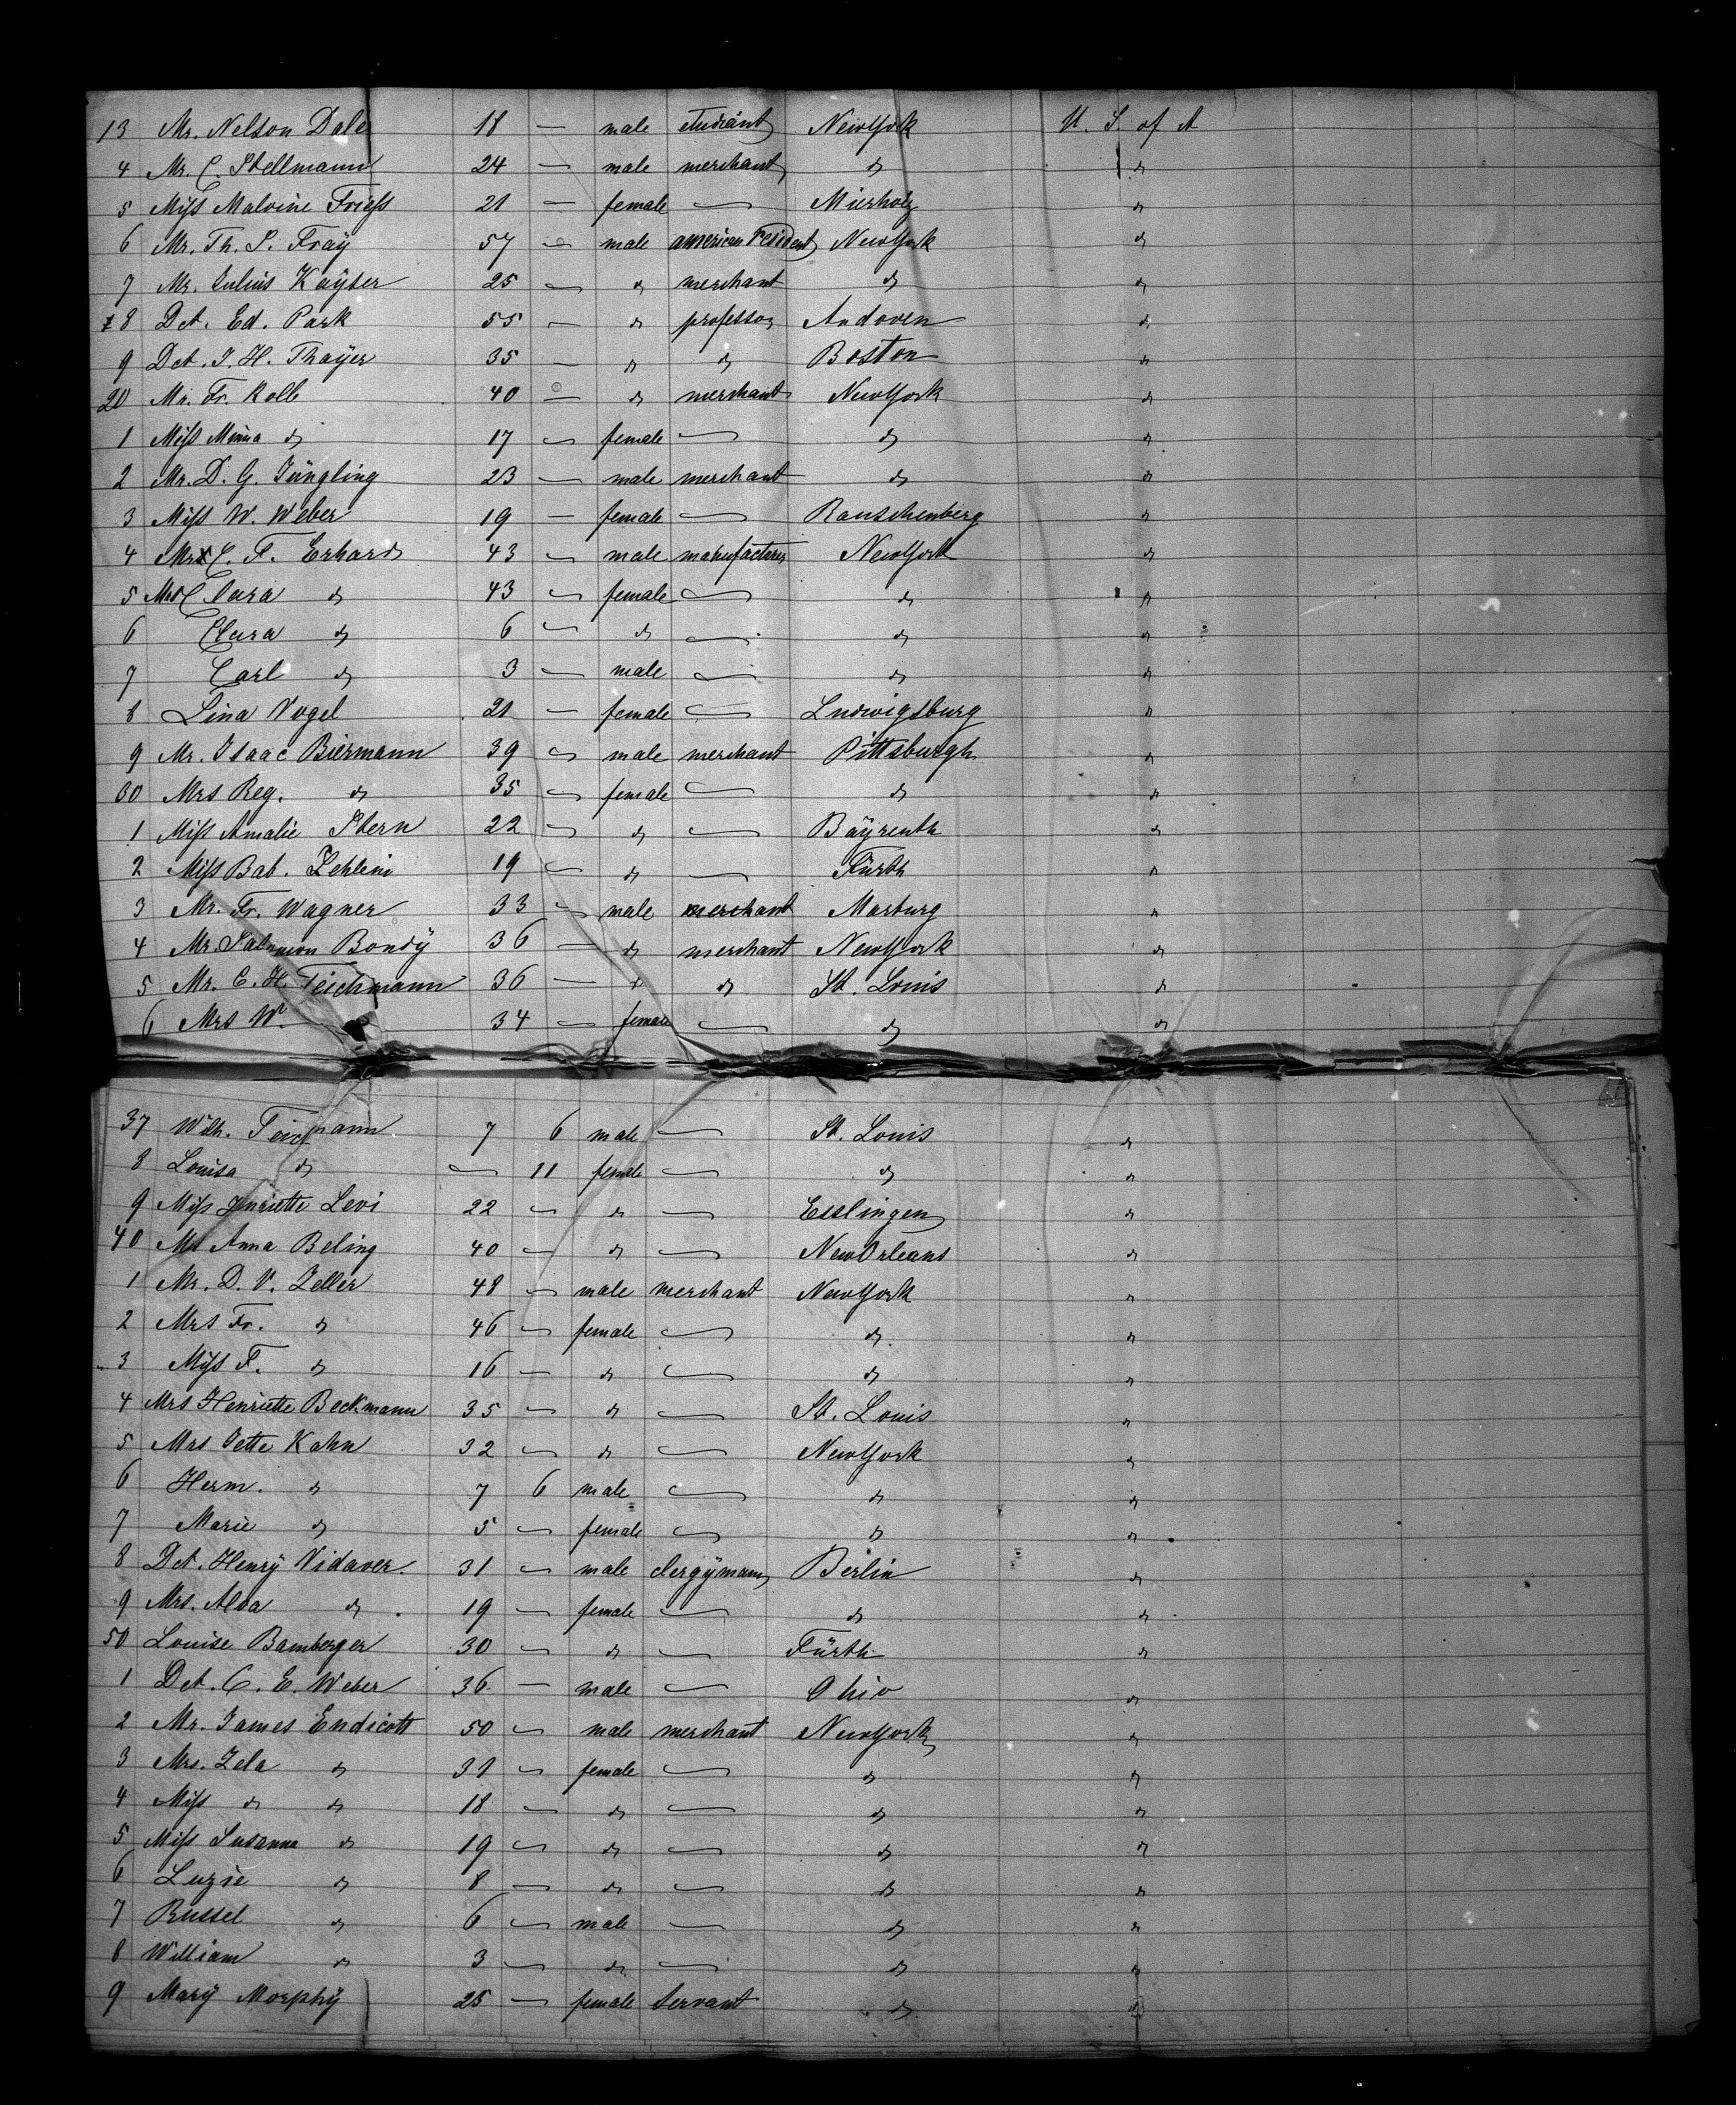 13 Mr. Nelson Dale 18 — male etudiant New York U. S. of A
4 Mr. C. Stellmann 24 — male merchant " "
5 Miss Malvine Friess 21 — female — Mierholz "
6 Mr. Th. S. Fraÿ 57 — male american resident New York "
7 Mr. Julius Kaÿser 25 — " merchant " "
8 Dct. Ed. Park 55 — " professor Andoven "
9 Dct. J. H. Thaÿer 35 — " " Boston "
20 Mr. Fr. Kolb 40 — " merchant New York "
1 Miss Minna " 17 — female — " "
2 Mr. D. G. Jüngling 23 — male merchant " "
3 Miss W. Weber 19 — female — Rauschenberg "
4 Mr C. F. Erhard 43 — male manufacturer New York "
5 Mrs Clara " 43 — female — " "
6 Clara " 6 — " — " "
7 Carl " 3 — male — " "
8 Lina Vogel 21 — female — Ludwigsburg "
9 Mr. Isaac Biermann 39 — male merchant Pittsburgh "
30 Mrs Reg. " 35 — female — " "
1 Miss Amalie Stern 22 — " — Baÿreuth "
2 Miss Bab. Zehlein 19 — " — Fürth "
3 Mr. Fr. Wagner 33 — male merchant Marburg "
4 Mr. Salomon Bondÿ 36 — " merchant New York "
5 Mr. C. H. Teichmann 36 — " " St. Louis "
6 Mrs W. 34 — female — " "
37 Wilh. Teichmann 7 6 male — St. Louis "
8 Louisa " — 11 female — " "
9 Miss Henriette Levi 22 — " — Esslingen "
40 Mrs Anna Beling 40 — " — New Orleans "
1 Mr. D. V. Zeller 48 — male merchant New York "
2 Mrs Fr. " 46 — female — " "
3 Miss F. " 16 — " — " "
4 Mrs Henriette Beckmann 35 — " — St. Louis "
5 Mrs Jette Kahn 32 — " — New York "
6 Herm. " 7 6 male — " "
7 Marie " 5 — female — " "
8 Dct. Henrÿ Vidaver. 31 — male clergÿman Berlin "
9 Mrs. Alva " 19 — female — " "
50 Louise Bamberger 30 — " — Fürth "
1 Dct. C. E. Weber 36 — male — Ohio "
2 Mr. James Endicott 50 — male merchant New York "
3 Mrs. Zela " 31 — female — " "
4 Miss " " 18 — " — " "
5 Miss Susanna " 19 — " — " "
6 Luzie " 8 — " — " "
7 Russel " 6 — male — " "
8 William " 3 — " — " "
9 Marÿ Morphÿ 25 — female servant " "